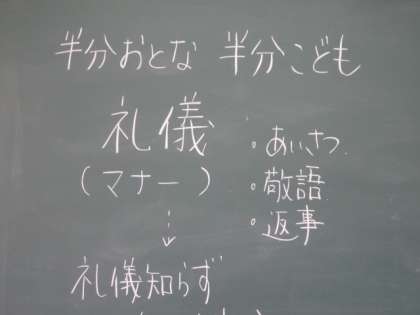 半分おとな 半分こども
礼儀
(マナー)
・あいさつ
・敬語
・返事
礼儀知らず